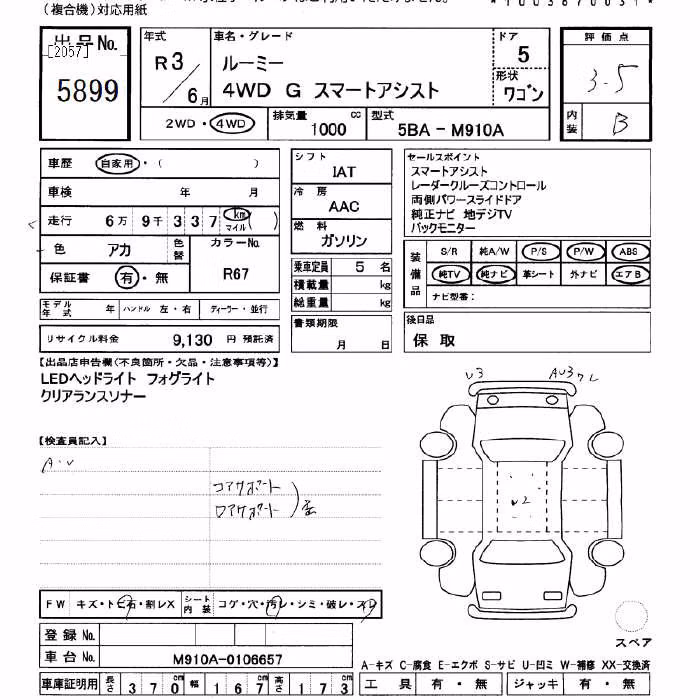 (複合機)対応用紙
*1003870031*
出品No.
[2057]
5899
年式
R3/6月
車名・グレード
ルーミー
4WD G スマートアシスト
ドア
5
形状
ワゴン
評価点
3.5
内装
B
2WD・4WD
排気量
1000 cc
型式
5BA-M910A
車歴 自家用・( )
車検 年 月
走行 6万9千337 km マイル ( )
色 アカ 色替
カラーNo.
R67
保証書 有・無
シフト
IAT
冷房
AAC
燃料
ガソリン
乗車定員 5名
積載量 kg
総重量 kg
セールスポイント
スマートアシスト
レーダークルーズコントロール
両側パワースライドドア
純正ナビ 地デジTV
バックモニター
装備品
S/R 純A/W P/S P/W ABS
純TV 純ナビ 革シート 外ナビ エアB
ナビ型番:
モデル年式 年 ハンドル 左・右 ディーラー・並行
リサイクル料金 9,130 円 預託済
書類期限
月 日
後日品
保 取
【出品店申告欄(不良箇所・欠品・注意事項等)】
LEDヘッドライト フォグライト
クリアランスソナー
U3
【検査員記入】
A・U
コアサポート
U2
FW キズ・トビ石・割レX
シート内装 コゲ・穴・汚レ・シミ・破レ・スレ
登録No.
車台No. M910A-0106657
車庫証明用 長さ 370cm 幅 167cm 高さ 173cm
スペア
A-キズ C-腐食 E-エクボ S-サビ U-凹ミ W-補修 XX-交換済
工具 有・無 ジャッキ 有・無